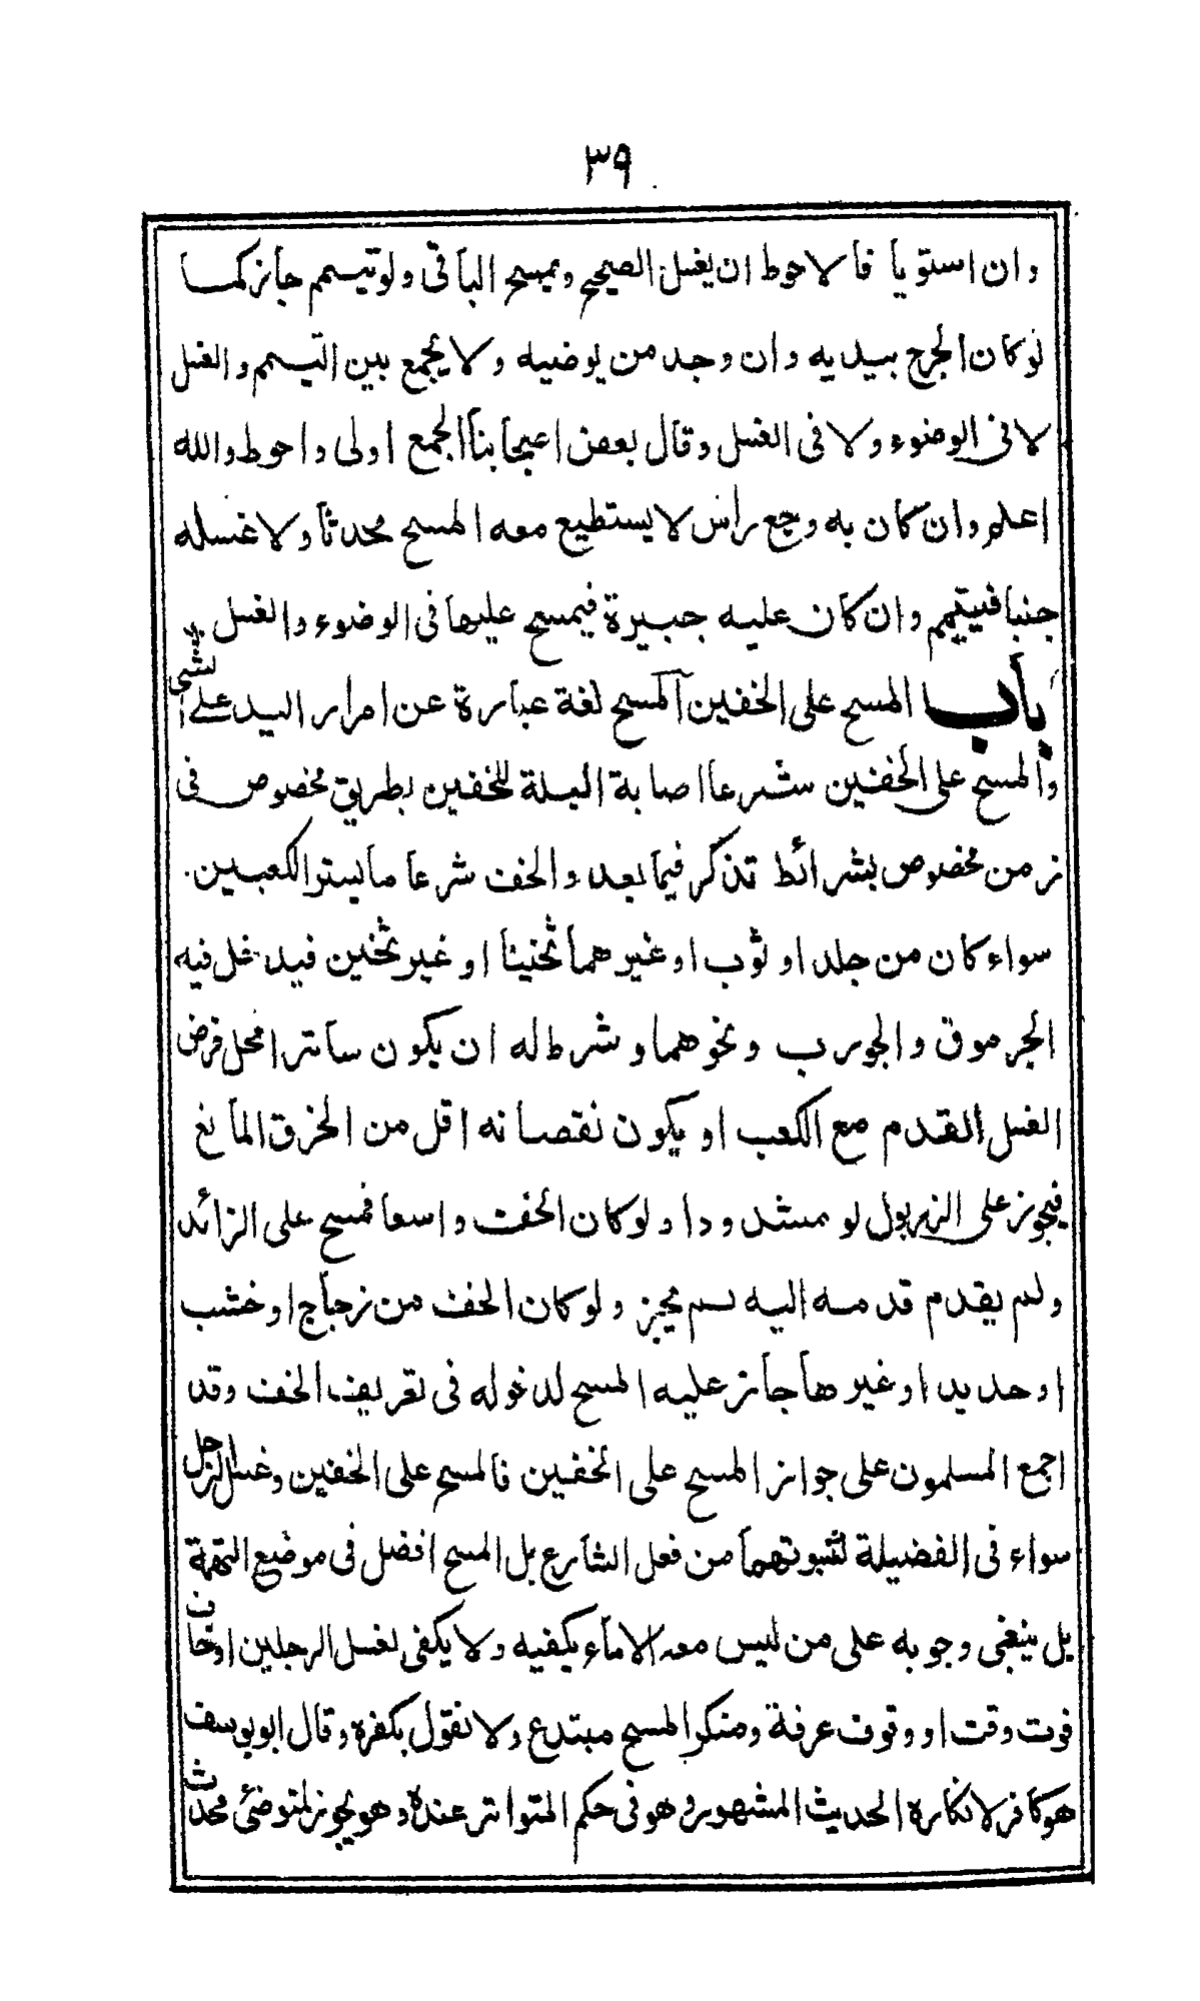 ٣٩
وان استويا فالاحوط ان يغسل الصحيح ويمسح الباقى ولو تيمم جاز كما
لو كان الجرح بيديه وان وجد من يوضيه ولا يجمع بين التيمم والغسل
لا فى الوضوء ولا فى الغسل وقال بعض اصحابنا الجمع اولى واحوط والله
اعلم وان كان به وجع راس لا يستطيع معه المسح محدثا ولا غسله
جنبا فيتيمم وان كان عليه جبيرة فيمسح عليها فى الوضوء والغسل
باب المسح على الخفين المسح لغة عبارة عن امرار اليد على الشىء
والمسح على الخفين شرعا اصابة البلة للخفين بطريق مخصوص فى
زمن مخصوص بشرائط تذكر فيما بعد والخف شرعا ما يستر الكعبين
سواء كان من جلد او ثوب او غيرهما ثخينا او غير ثخين فيدخل فيه
الجرموق والجورب ونحوهما وشرط له ان يكون ساترا محل فرض
الغسل القدم مع الكعب او يكون نقصانه اقل من الخرق المانع
فيجوز على الزربول لو مشدودا ولو كان الخف واسعا فمسح على الزائد
ولم يقدم قدمه اليه لم يجز ولو كان الخف من زجاج او خشب
او حديد او غيرها جاز عليه المسح لدخوله فى تعريف الخف وقد
اجمع المسلمون على جواز المسح على الخفين فالمسح على الخفين وغسل الرجل
سواء فى الفضيلة لثبوتهما من فعل الشارع بل المسح افضل فى موضع التهمة
بل ينبغى وجوبه على من ليس معه الا ماء يكفيه ولا يكفى لغسل الرجلين او خاف
فوت وقت او وقوف عرفة ومنكر المسح مبتدع ولا نقول بكفره وقال ابو يوسف
هو كافر لانكاره الحديث المشهور وهو فى حكم المتواتر عنده وهو يجوز لمتوضئ محدث